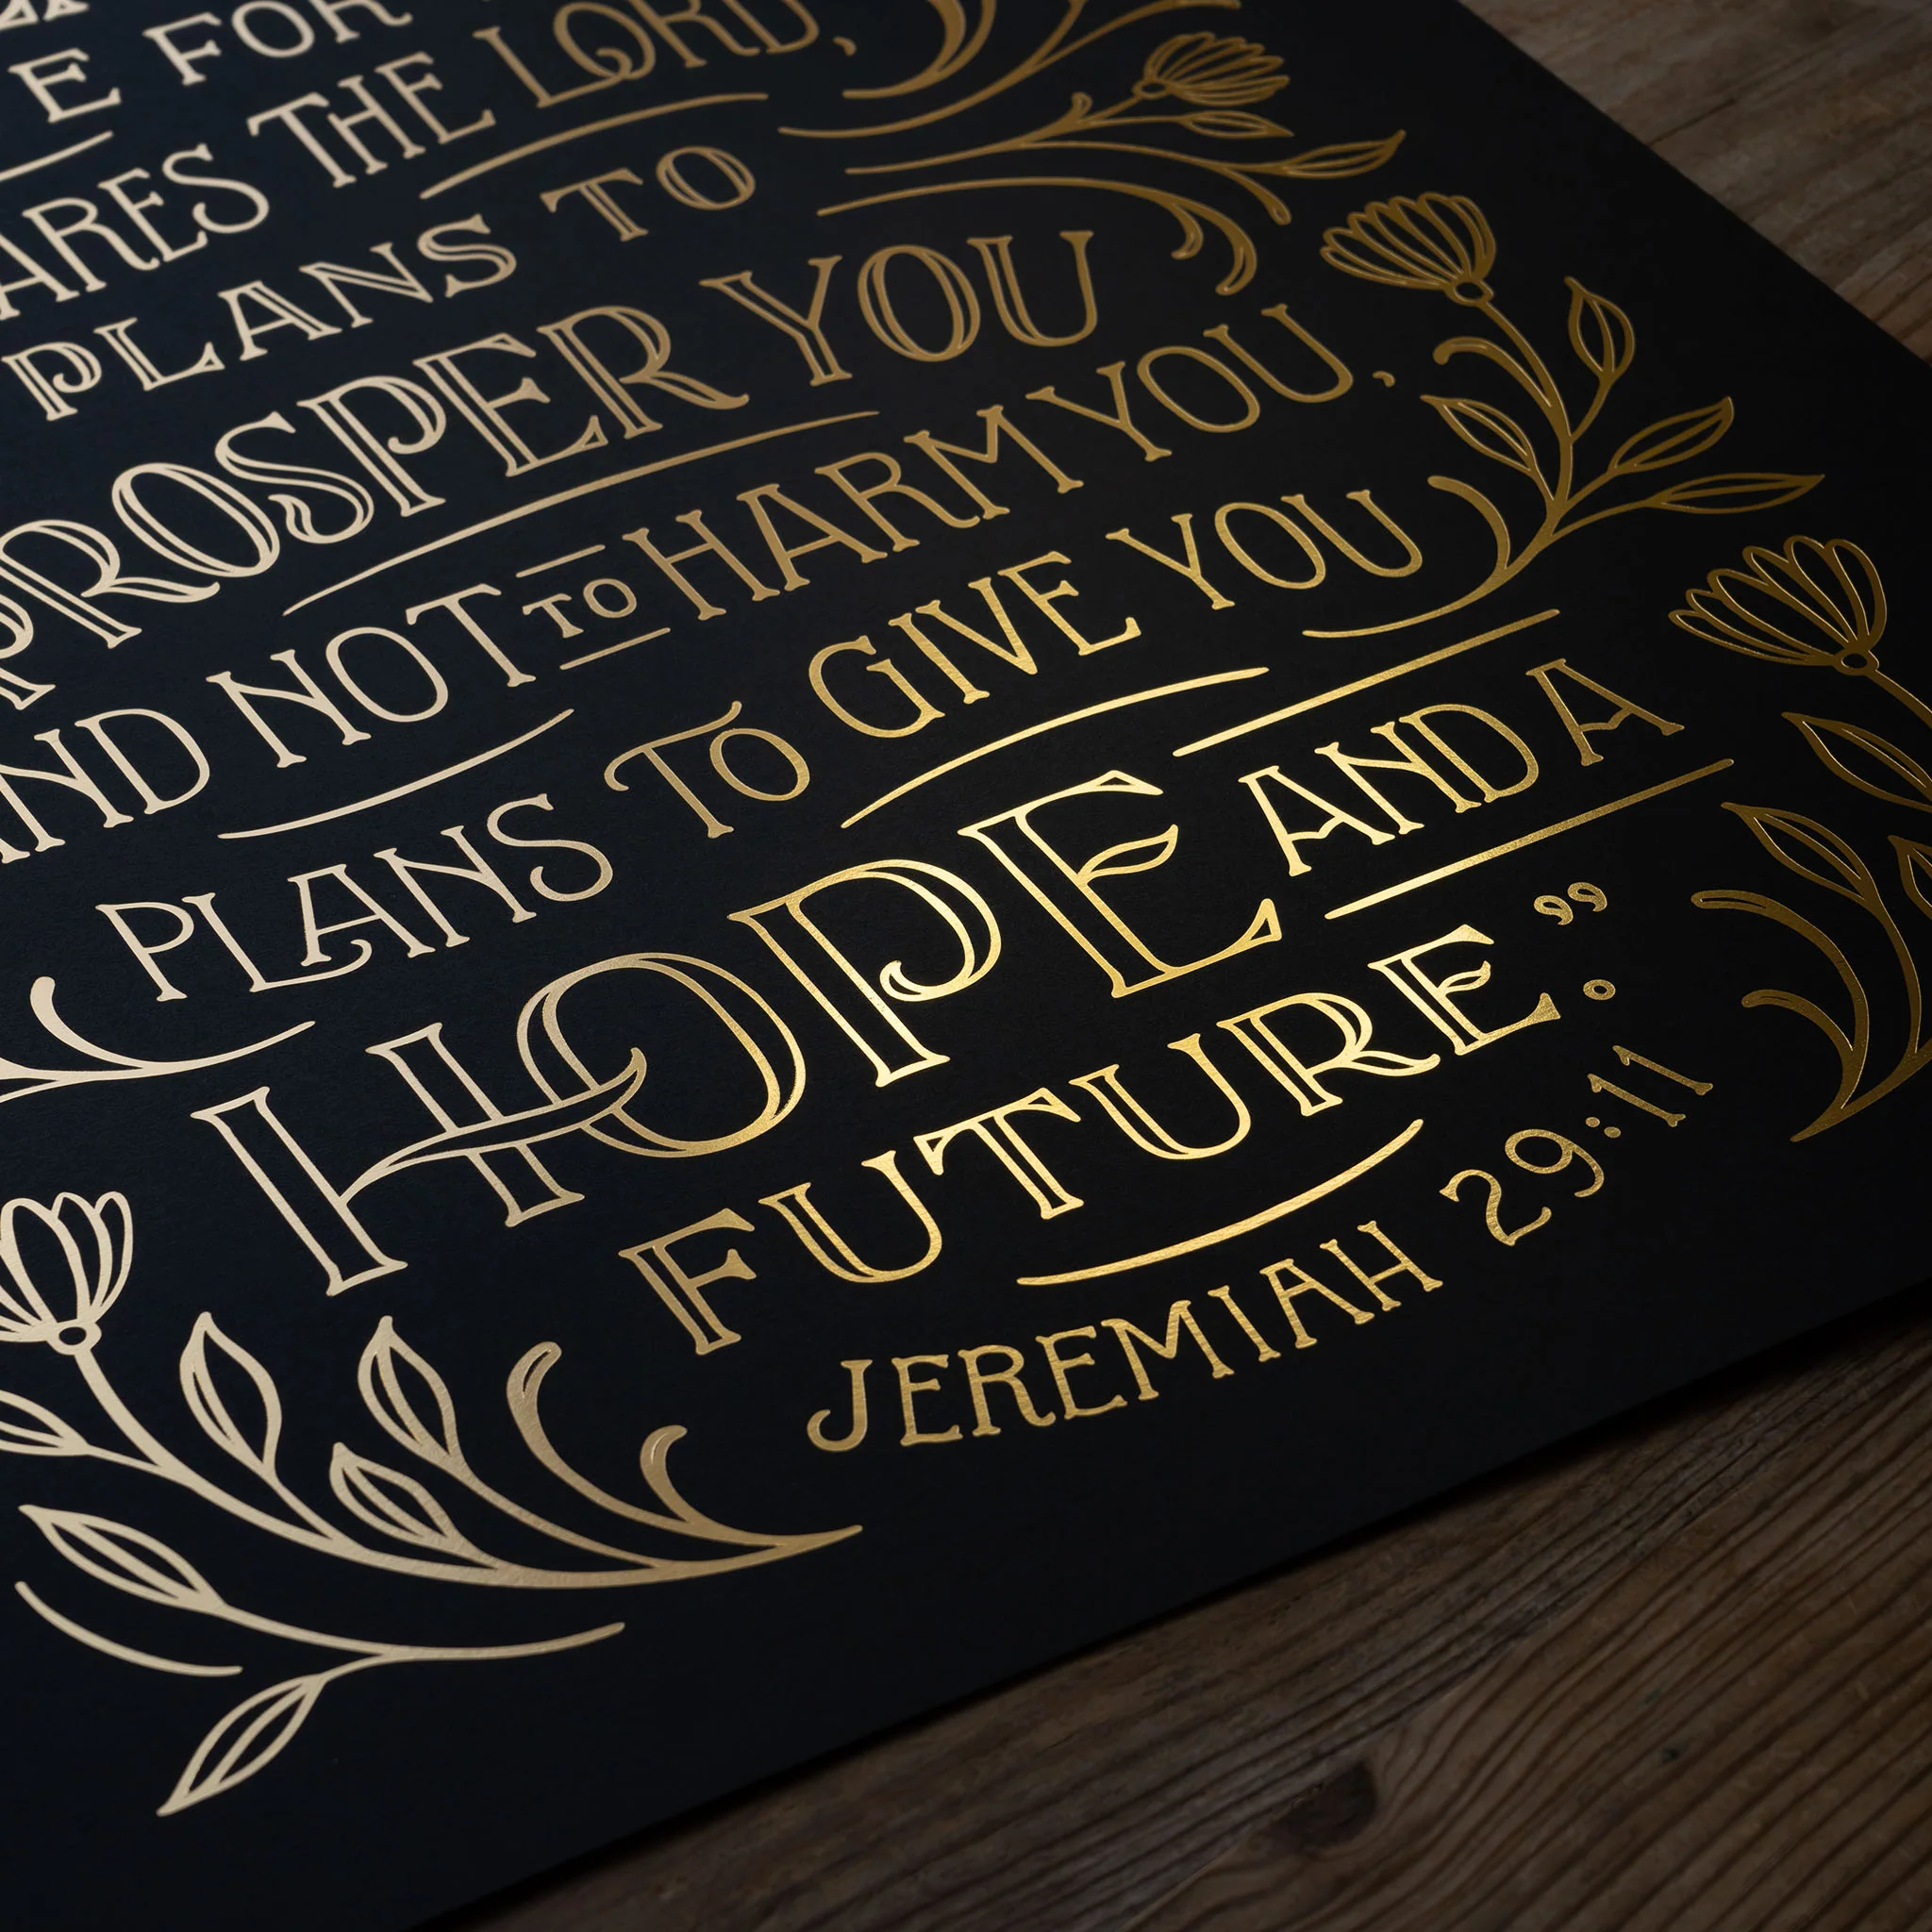 E FOR
ARES THE LORD,
PLANS TO
PROSPER YOU
AND NOT TO HARM YOU,
PLANS TO GIVE YOU
HOPE AND A
FUTURE.”
JEREMIAH 29:11